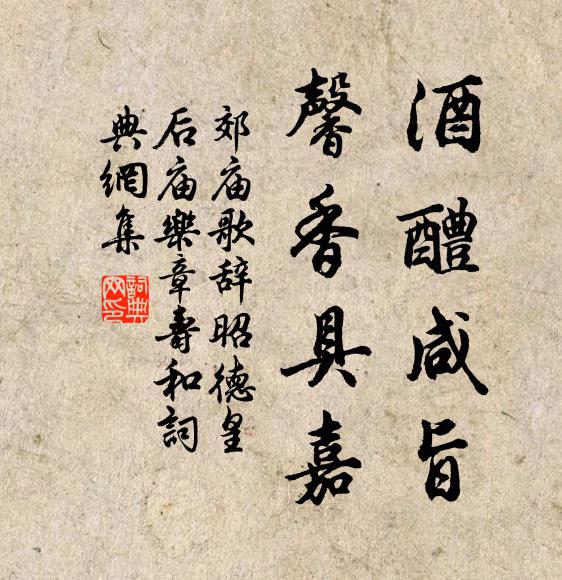 酒醴咸旨
馨香具嘉
郊庙歌辞昭德皇
后庙樂章壽和詞
典網集
詞典
网印